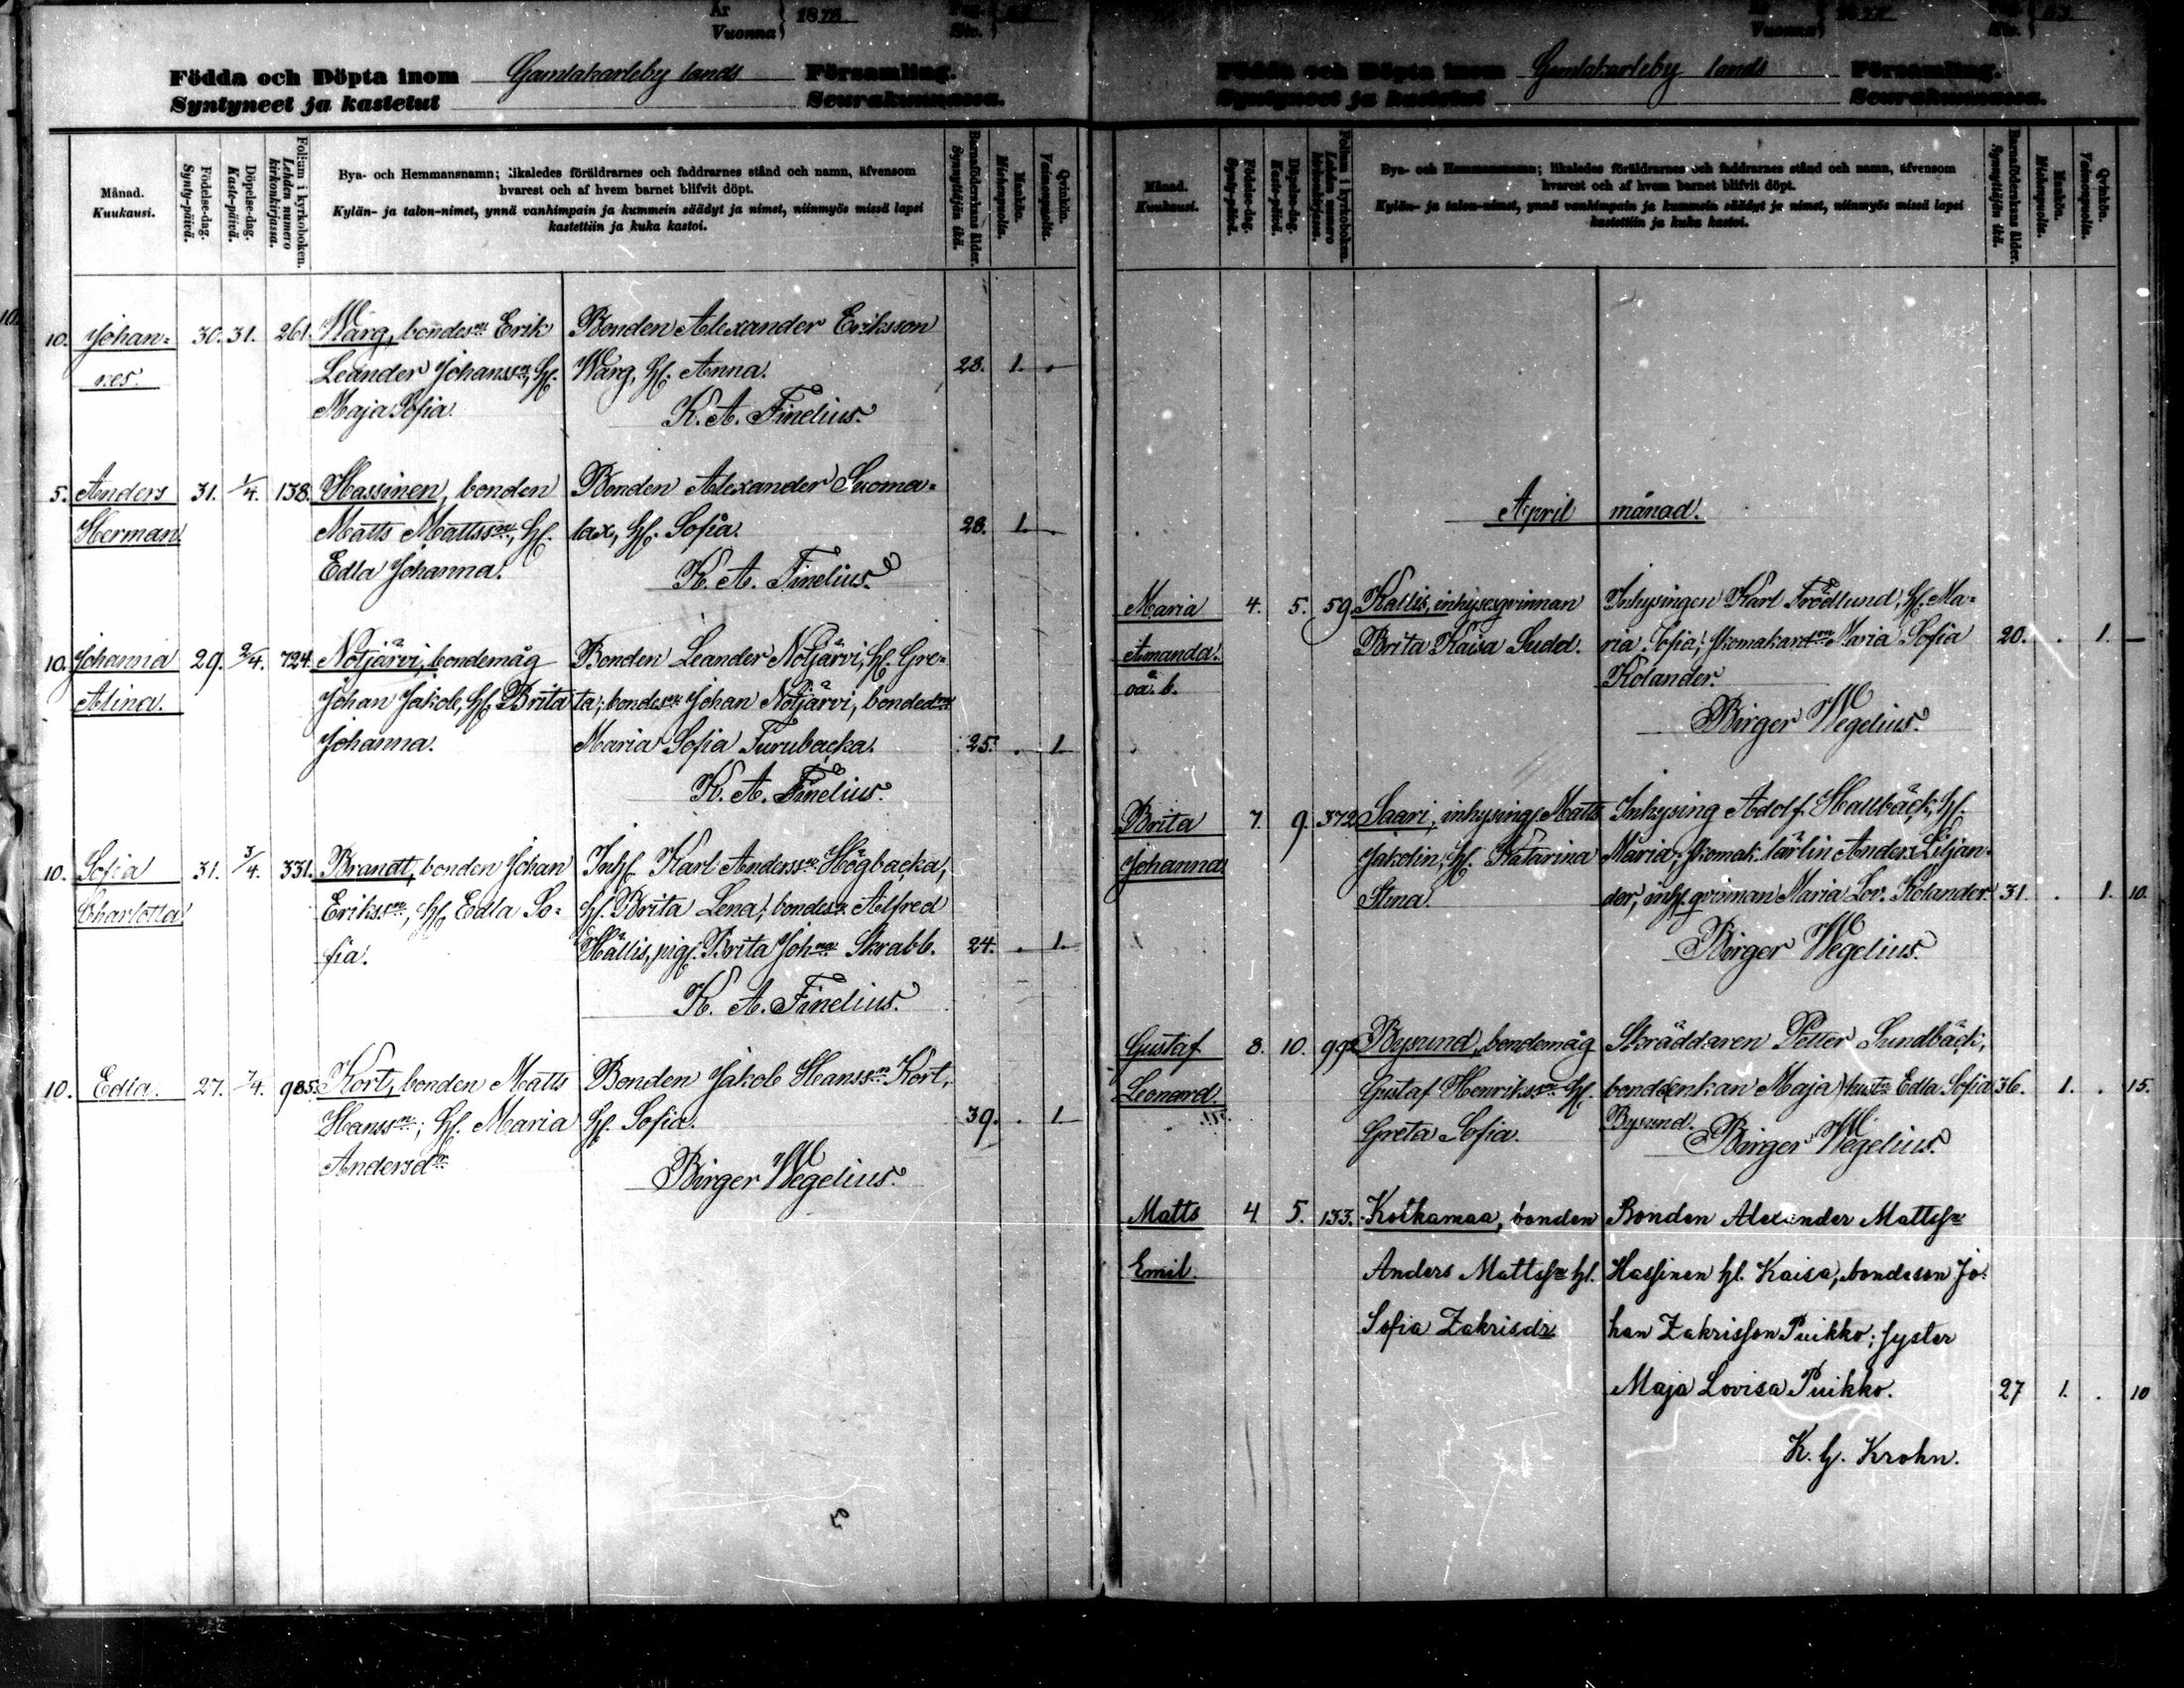 År
Vuonna } 1878.
Födda och Döpta inom Gamlakarleby lands Församling.
Syntyneet ja kastetut Seurakunnassa.
Månad.
Kuukausi.
Födelse-dag.
Synty-päivä.
Döpelse-dag.
Kaste-päivä.
Folium i kyrkoboken.
Lehden numero kirkonkirjassa.
Bya- och Hemmansnamn; likaledes föräldrarnes och faddrarnes stånd och namn, äfvensom
hvarest och af hvem barnet blifvit döpt.
Kylän- ja talon-nimet, ynnä vanhimpain ja kummein säädyt ja nimet, niinmyös missä lapsi
kastettiin ja kuka kastoi.
Barnaföderskans ålder.
Synnyttäjän ikä.
Mankön.
Miehenpuolia.
Qvinkön.
Vaimonpuolia.
10. Johan= 30. 31. 261. Warg, bondesn Erik Bonden Alexander Eriksson
nes. Leander Johanssn, hf. Warg, hf. Anna. 28. 1. .
Maja Sofia. K. A. Finelius.
5. Anders 31. 1/4. 138. Hassinen, bonden Bonden Alexander Suoma=
Herman Matts Mattssn, hf. lax, hf. Sofia. 28. 1. .
Edla Johanna. K. A. Finelius.
10. Johanna 29. 2/4. 724. Nötjärvi, bondemåg Bonden Leander Nötjärvi, hf. Gre=
Alina. Johan Jakob, hf. Brita ta; bondesn Johan Nötjärvi, bondedr
Johanna. Maria Sofia Furubacka. 25. . 1.
K. A. Finelius.
10. Sofia 31. 3/4. 331. Brandt, bonden Johan Inhf Karl Anderssn Högbacka,
Charlotta Erikssn, hf. Edla So= hf. Brita Lena; bondesn Alfred
fia. Hällis, pig. Brita Johna Skrabb. 24. . 1.
K. A. Finelius.
10. Edla. 27. 7/4. 985. Kort, bonden Matts Bonden Jakob Hanssn Kort,
Hanssn; hf. Maria hf. Sofia. 39. . 1.
Andersdr Birger Wegelius.
Födda och Döpta inom Gamlakarleby lands Församling.
Syntyneet ja kastetut Seurakunnassa.
Månad.
Kuukausi.
Födelse-dag.
Synty-päivä.
Döpelse-dag.
Kaste-päivä.
Folium i kyrkoboken.
Lehden numero kirkonkirjassa.
Bya- och Hemmansnamn; likaledes föräldrarnes och faddrarnes stånd och namn, äfvensom
hvarest och af hvem barnet blifvit döpt.
Kylän- ja talon-nimet, ynnä vanhimpain ja kummein säädyt ja nimet, niinmyös missä lapsi
kastettiin ja kuka kastoi.
Barnaföderskans ålder.
Synnyttäjän ikä.
Mankön.
Miehenpuolia.
Qvinkön.
Vaimonpuolia.
April månad.
Maria 4. 5. 59. Kallis, inhysesqvinnan Inhysingen Karl Frödlund, hf. Ma=
Amanda. Brita Kaisa Sudd. ria Sofia; skomakaredn Maria Sofia 20. . 1. —
oä. b. Kolander.
Birger Wegelius.
Brita 7. 9. 372 Saari, inhysing Matts Inhysing Adolf Hallbäck, hf.
Johanna Jakolin, hf. Katarina Maria; skomak. lärlin Anders Liljan=
Stina. der, inhf. qvinnan Maria Lov. Kolander. 31. . 1. 10.
Birger Wegelius.
Gustaf 8. 10. 992 Bysund, bondemåg Skräddaren Petter Sundbäck,
Leonard. Gustaf Henrikssn hf. bondeenkan Maja, Edla Sofia 36. 1. . 15.
Greta Sofia. Bysund.
Birger Wegelius.
Matts 4. 5. 133. Kotkamaa, bonden Bonden Alexander Mattssn
Emil. Anders Mattssn hf. Hassinen hf. Kaisa, bondeson Jo=
Sofia Zakrisdr han Zakrisson Puikko; syster
Maja Lovisa Puikko. 27 1. . 10
K. G. Krohn.